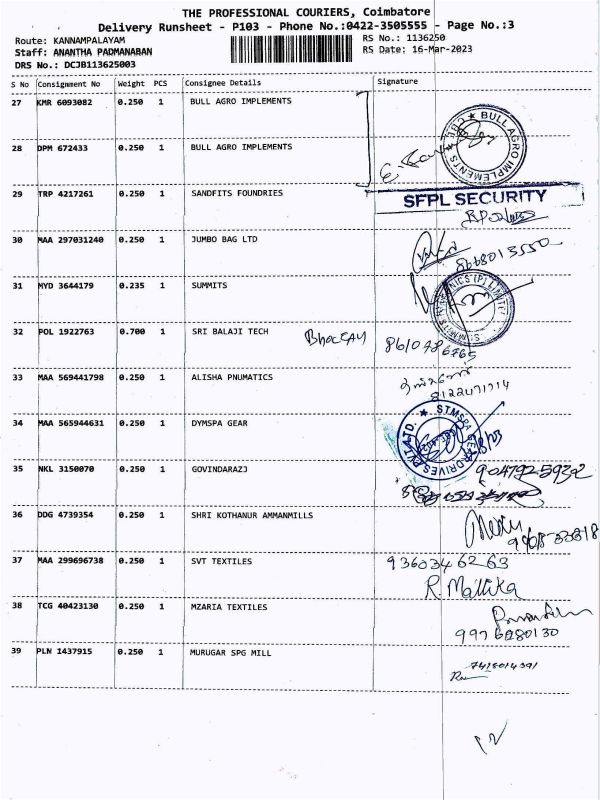 THE PROFESSIONAL COURIERS, Coimbatore
Delivery Runsheet - P103 - Phone No.:0422-3505555 - Page No.:3
Route: KANNAMPALAYAM RS No.: 1136250
Staff: ANANTHA PADMANABAN RS Date: 16-Mar-2023
DRS No.: DCJB113625003
S No Consignment No Weight PCS Consignee Details Signature
27 KMR 6093082 0.250 1 BULL AGRO IMPLEMENTS
BULL AGRO IMPLEMENTS
28 DPM 672433 0.250 1 BULL AGRO IMPLEMENTS
29 TRP 4217261 0.250 1 SANDFITS FOUNDRIES SFPL SECURITY
30 MAA 297031240 0.250 1 JUMBO BAG LTD
8668013550
31 MYD 3644179 0.235 1 SUMMITS
32 POL 1922763 0.700 1 SRI BALAJI TECH
33 MAA 569441798 0.250 1 ALISHA PNUMATICS
34 MAA 565944631 0.250 1 DYMSPA GEAR
STMSPA GEAR DRIVES PVT LTD.
35 NKL 3150070 0.250 1 GOVINDARAZJ
36 DDG 4739354 0.250 1 SHRI KOTHANUR AMMANMILLS
37 MAA 299696738 0.250 1 SVT TEXTILES 9360346263
R. Mallika
38 TCG 40423130 0.250 1 MZARIA TEXTILES
9976280130
39 PLN 1437915 0.250 1 MURUGAR SPG MILL